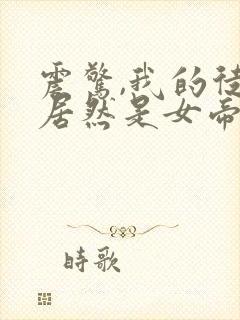 震驚,我的徒
居然是女帝
時歌